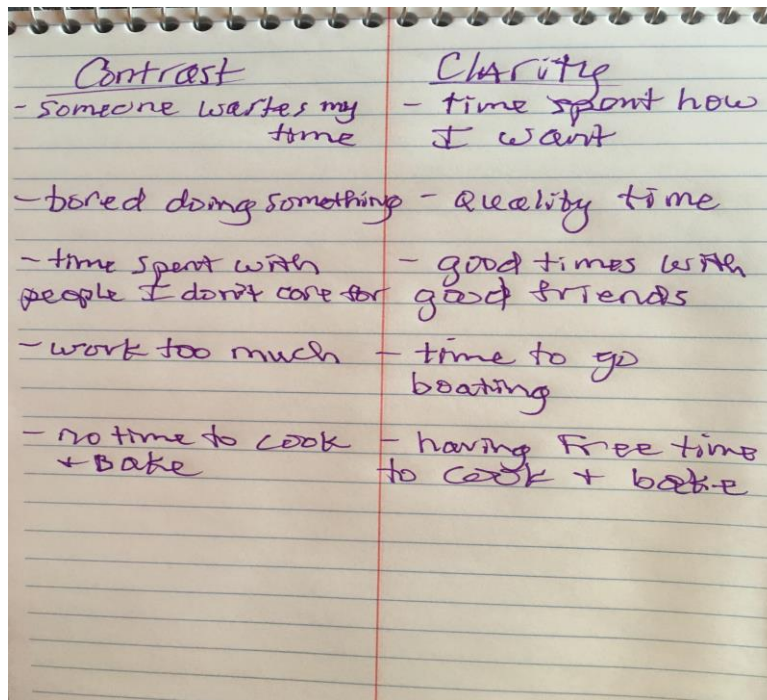 Contrast
- someone wastes my
time
- bored doing something
- time spent with
people I don't care for
- work too much
- no time to cook
+ Bake
Clarity
- time spent how
I want
- Quality time
- good times with
good friends
- time to go
boating
- having Free time
to cook + bake